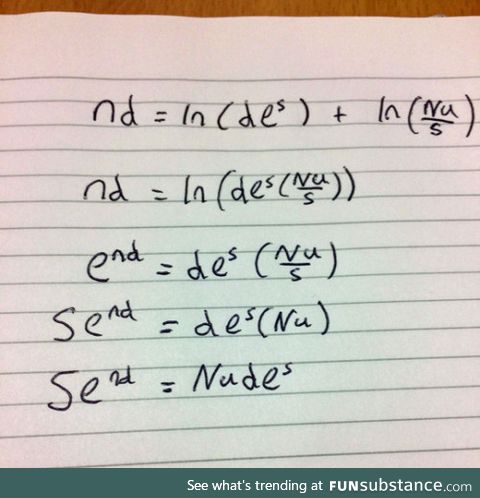 nd = ln(de^s) + ln(Nu/s)
nd = ln(de^s(Nu/s))
e^nd = de^s (Nu/s)
Se^nd = de^s(Nu)
Se^nd = Nude^s
See what's trending at FUNsubstance.com